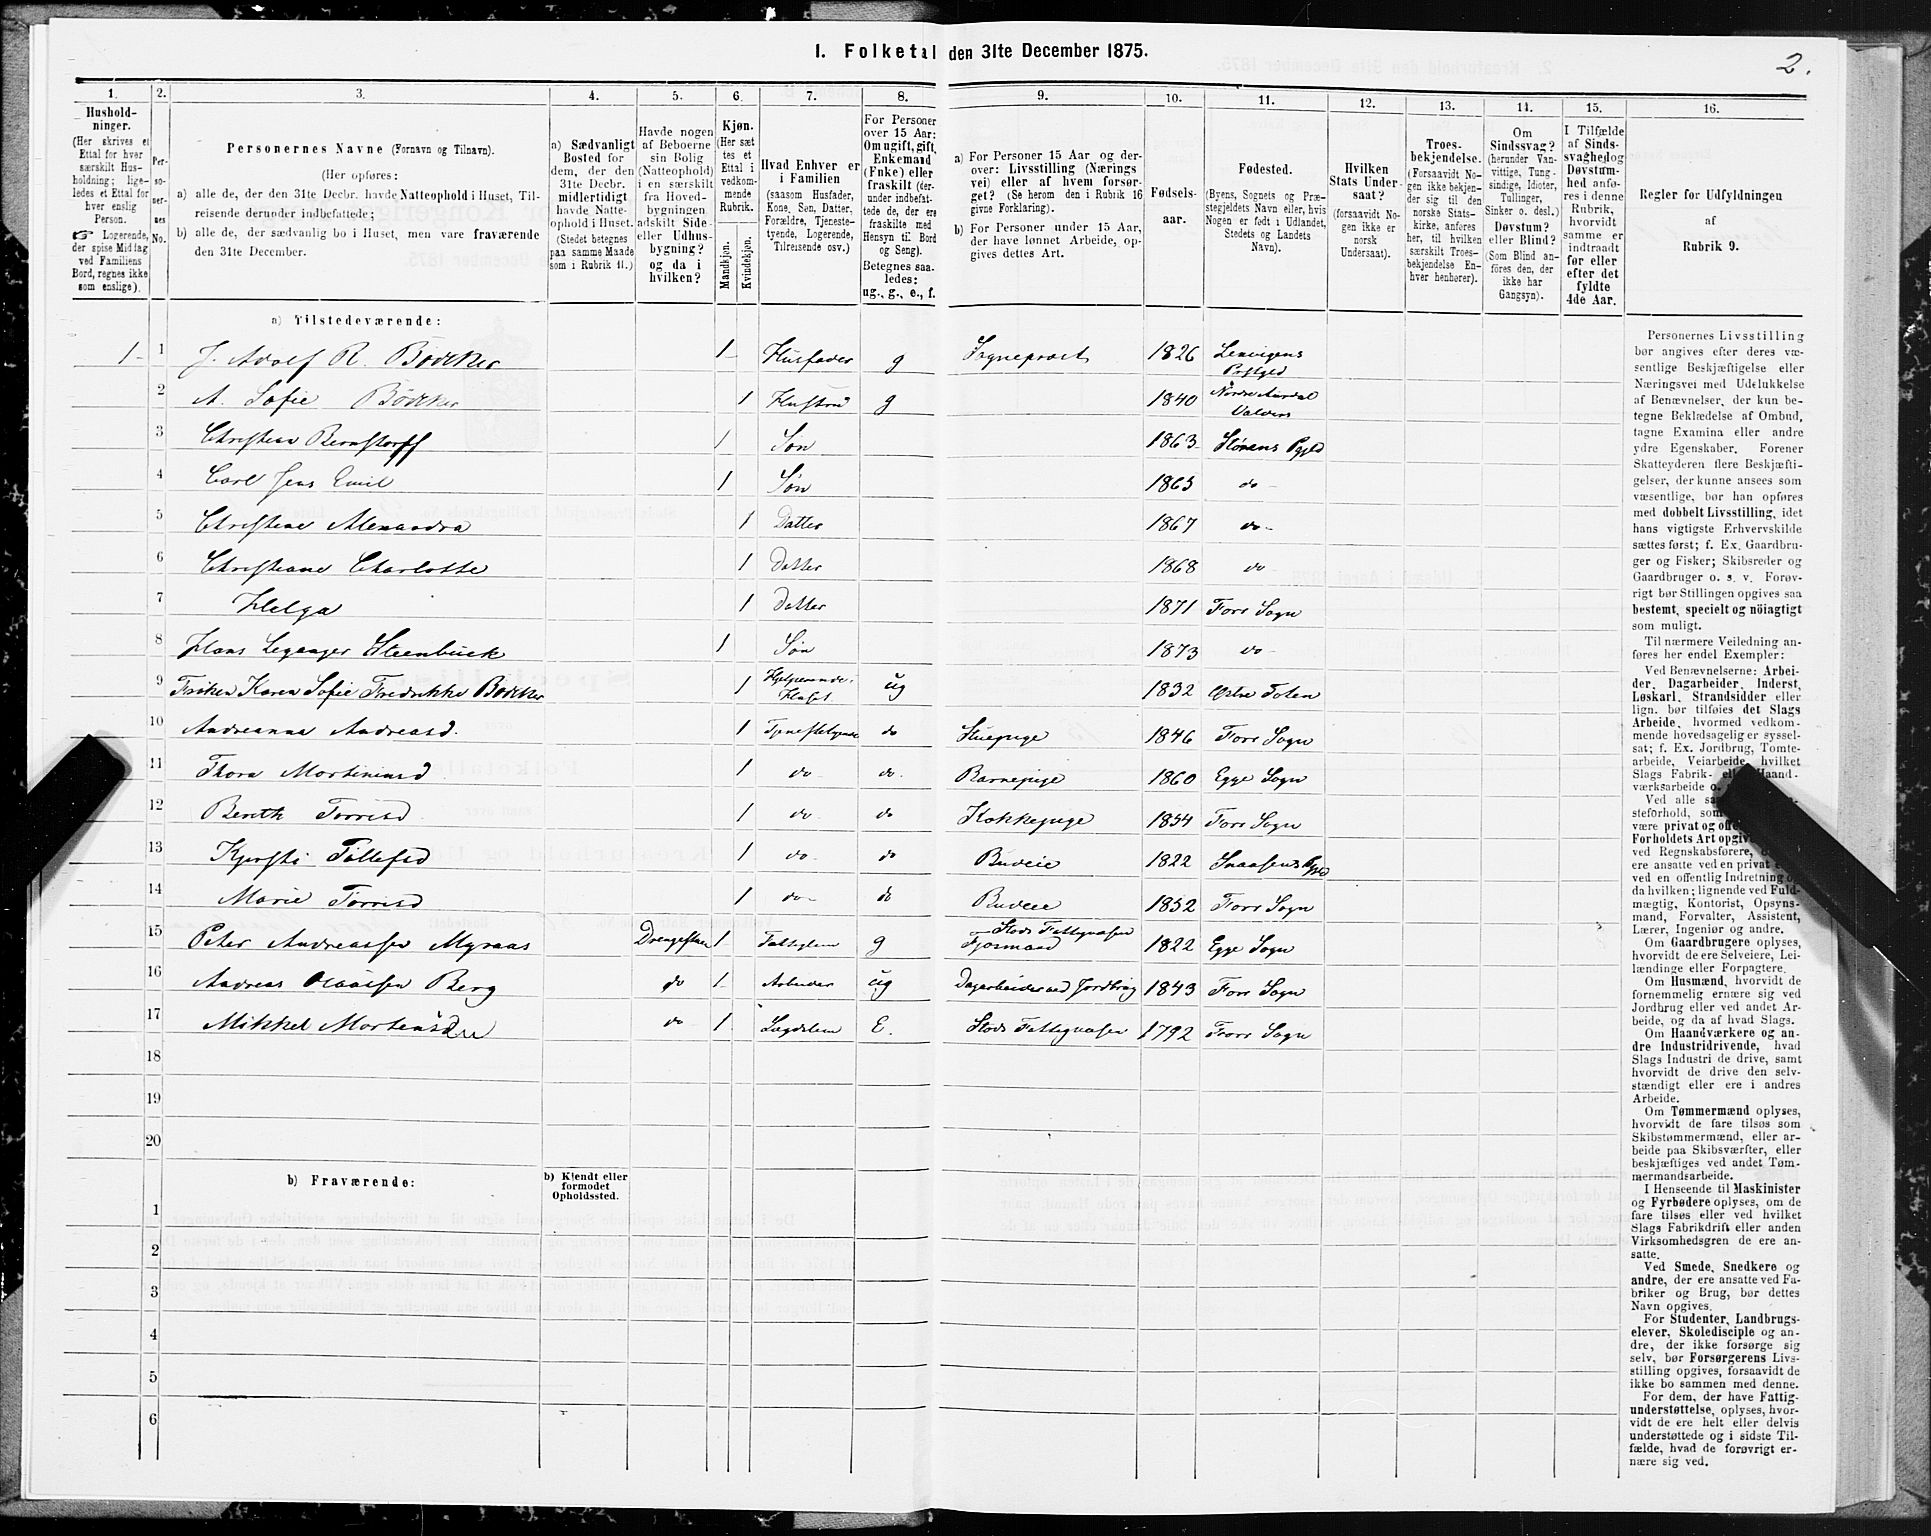 1. Folketal den 31te December 1875.
2.
1.
2.
3.
4.
5.
6.
7.
8.
9.
10.
11.
12.
13.
14.
15.
16.
Hushold-
ninger.
(Her skrives et
Ettal for hver
særskilt Hus-
holdning; lige-
ledes et Ettal for
hver enslig
Person.
☞ Logerende,
der spise Middag
ved Familiens
Bord, regnes ikke
som enslige).
Per-
so-
ner-
nes
No.
Personernes Navne (Fornavn og Tilnavn).
(Her opføres:
a) alle de, der den 31te Decbr. havde Natteophold i Huset, Til-
reisende derunder indbefattede;
b) alle de, der sædvanlig bo i Huset, men vare fraværende
den 31te December.
a) Sædvanligt
Bosted for
dem, der den
31te Decbr.
midlertidigt
havde Natte-
ophold i Huset.
(Stedet betegnes
paa samme Maade
som i Rubrik 11.)
Havde nogen
af Beboerne
sin Bolig
(Natteophold)
i en særskilt
fra Hoved-
bygningen
adskilt Side-
eller Udhus-
bygning?
og da i
hvilken?
Kjøn.
(Her sæt-
tes et
Ettal i
vedkom-
mende
Rubrik.
Mandkjøn.
Kvindekjøn.
Hvad Enhver er
i Familien
(saasom Husfader,
Kone, Søn, Datter,
Forældre, Tjeneste-
tyende, Logerende,
Tilreisende osv.)
For Personer
over 15 Aar:
Om ugift, gift,
Enkemand
(Enke) eller
fraskilt (der-
under indbefat-
tede de, der ere
fraskilte med
Hensyn til Bord
og Seng).
Betegnes saa-
ledes:
ug., g., e., f.
a) For Personer 15 Aar og der-
over: Livsstilling (Nærings-
vei) eller af hvem forsør-
get? (Se herom den i Rubrik 16
givne Forklaring).
b) For Personer under 15 Aar,
der have lønnet Arbeide, op-
gives dettes Art.
Fødsels-
aar.
Fødested.
(Byens, Sognets og Præ-
stegjeldets Navn eller, hvis
Nogen er født i Udlandet,
Stedets og Landets
Navn).
Hvilken
Stats Under-
saat?
(forsaavidt No-
gen ikke er
norsk
Undersaat).
Troes-
bekjendelse.
(Forsaavidt No-
gen ikke bekjen-
der sig til den
norske Stats-
kirke, anføres
her, til hvilken
særskilt Troes-
bekjendelse En-
hver henhører).
Om
Sindssvag?
(herunder Van-
vittige, Tung-
sindige, Idioter,
Tullinger,
Sinker o. desl.)
Døvstum?
eller Blind?
(Som Blind an-
føres den, der
ikke har
Gangsyn).
I Tilfælde
af Sinds-
svaghed og
Døvstum-
hed anfø-
res i denne
Rubrik,
hvorvidt
samme er
indtraadt
før eller
efter det
fyldte
4de Aar.
Regler for Udfyldningen
af
Rubrik 9.
a) Tilstedeværende:
1- 1 J. Adolf R. Bødtker 1- Husfader g Sogneprest 1826 Lenvigens Prstgjld
2 A. Sofie Bødtker 1 Hustru g 1840 Nordre Aurdal Valders
3 Christian Bernstorff 1 Søn 1863 Størens Pgjld
4 Carl Jens Emil 1 Søn 1865 do-
5 Christine Alexandra 1 Datter 1867 do-
6 Christiane Charlotte 1 Datter 1868 do
7 Helga 1 Datter 1871 Forr Sogn
8 Hans Leganger Steenbuck 1 Søn 1873 do-
9 Frøken Karen Sofie Fredrikke Bødtker 1 ug 1832 Østre Toten
10 Andreanna Andreasd. 1 Tjenestetyende do Stuepige 1846 Forr Sogn
11 Thora Mortensd 1 do- do. Barnepige 1860 Egge Sogn
12 Bereth Torrisd. 1 do- do Kokkepige 1854 Forr Sogn
13 Kjersti Tollefsd 1 do- do Budeie 1822 Snaasens Pgjld
14 Marie Torrisd 1 do- do Budeie 1852 Forr Sogn
15 Peter Andreassen Myraas Drengestuen 1 Fattiglem g Stods Fattigvæsen Fjosmand 1822 Egge Sogn
16 Andreas Olausen Berg do 1- Arbeider ug Dagarbeider ved Jordbrug 1843 Forr Sogn
17 Mikkel Mortensen do- 1- Lægdslem E. Stods Fattigvæsen 1792 Forr Sogn
18
19
20
b) Fraværende:
b) Kjendt eller
formodet
Opholdssted.
1
2
3
4
5
6
Personernes Livsstilling
bør angives efter deres væ-
sentlige Beskjæftigelse eller
Næringsvei med Udelukkelse
af Benævnelser, der kun be-
tegne Beklædelse af Ombud,
tagne Examina eller andre
ydre Egenskaber. Forener
Skatteyderen flere Beskjæfti-
gelser, der kunne ansees som
væsentlige, bør han opføres
med dobbelt Livsstilling, idet
hans vigtigste Erhvervskilde
sættes først; f. Ex. Gaardbru-
ger og Fisker; Skibsreder og
Gaardbruger o. s. v. Forøv-
rigt bør Stillingen opgives saa
bestemt, specielt og nöiagtigt
som muligt.
Til nærmere Veiledning an-
føres her endel Exempler:
Ved Benævnelserne: Arbei-
der, Dagarbeider, Inderst,
Løskarl, Strandsidder eller
lign. bør tilføies det Slags
Arbeide, hvormed vedkom-
mende hovedsagelig er syssel-
sat; f. Ex. Jordbrug, Tomte-
arbeide, Veiarbeide, hvilket
Slags Fabrik- eller Haand-
værksarbeide o.
Ved alle
steforhold, som
være privat og off
Forholdets Art opgiv
ved Regnskabsførere,
ere ansatte ved en privat
ved en offentlig Indretning og
da hvilken; lignende ved Fuld-
mægtig, Kontorist, Opsyns-
mand, Forvalter, Assistent,
Lærer, Ingeniør og andre.
Om Gaardbrugere oplyses,
hvorvidt de ere Selveiere, Lei-
lændinge eller Forpagtere.
Om Husmænd, hvorvidt de
fornemmelig ernære sig ved
Jordbrug eller ved andet Ar-
beide, og da af hvad Slags.
Om Haandværkere og an-
dre Industridrivende, hvad
Slags Industri de drive, samt
hvorvidt de drive den selv-
stændigt eller ere i andres
Arbeide.
Om Tømmermænd oplyses,
hvorvidt de fare tilsøs som
Skibstømmermænd, eller ar-
beide paa Skibsværfter, eller
beskjæftiges ved andet Tøm-
mermandsarbeide.
I Henseende til Maskinister
og Fyrbødere oplyses, om de
fare tilsøs eller ved hvilket
Slags Fabrikdrift eller anden
Virksomhedsgren de ere an-
satte.
Ved Smede, Snedkere og
andre, der ere ansatte ved Fa-
briker og Brug, bør dettes
Navn opgives.
For Studenter, Landbrugs-
elever, Skoledisciple og an-
dre, der ikke forsørge sig
selv, bør Forsørgerens Livs-
stilling opgives, forsaavidt de
ikke bo sammen med denne.
For dem, der have Fattig-
understøttelse, oplyses, hvor-
vidt de ere helt eller delvis
understøttede og i sidste Til-
fælde, hvad de forøvrigt er-
nære sig ved.